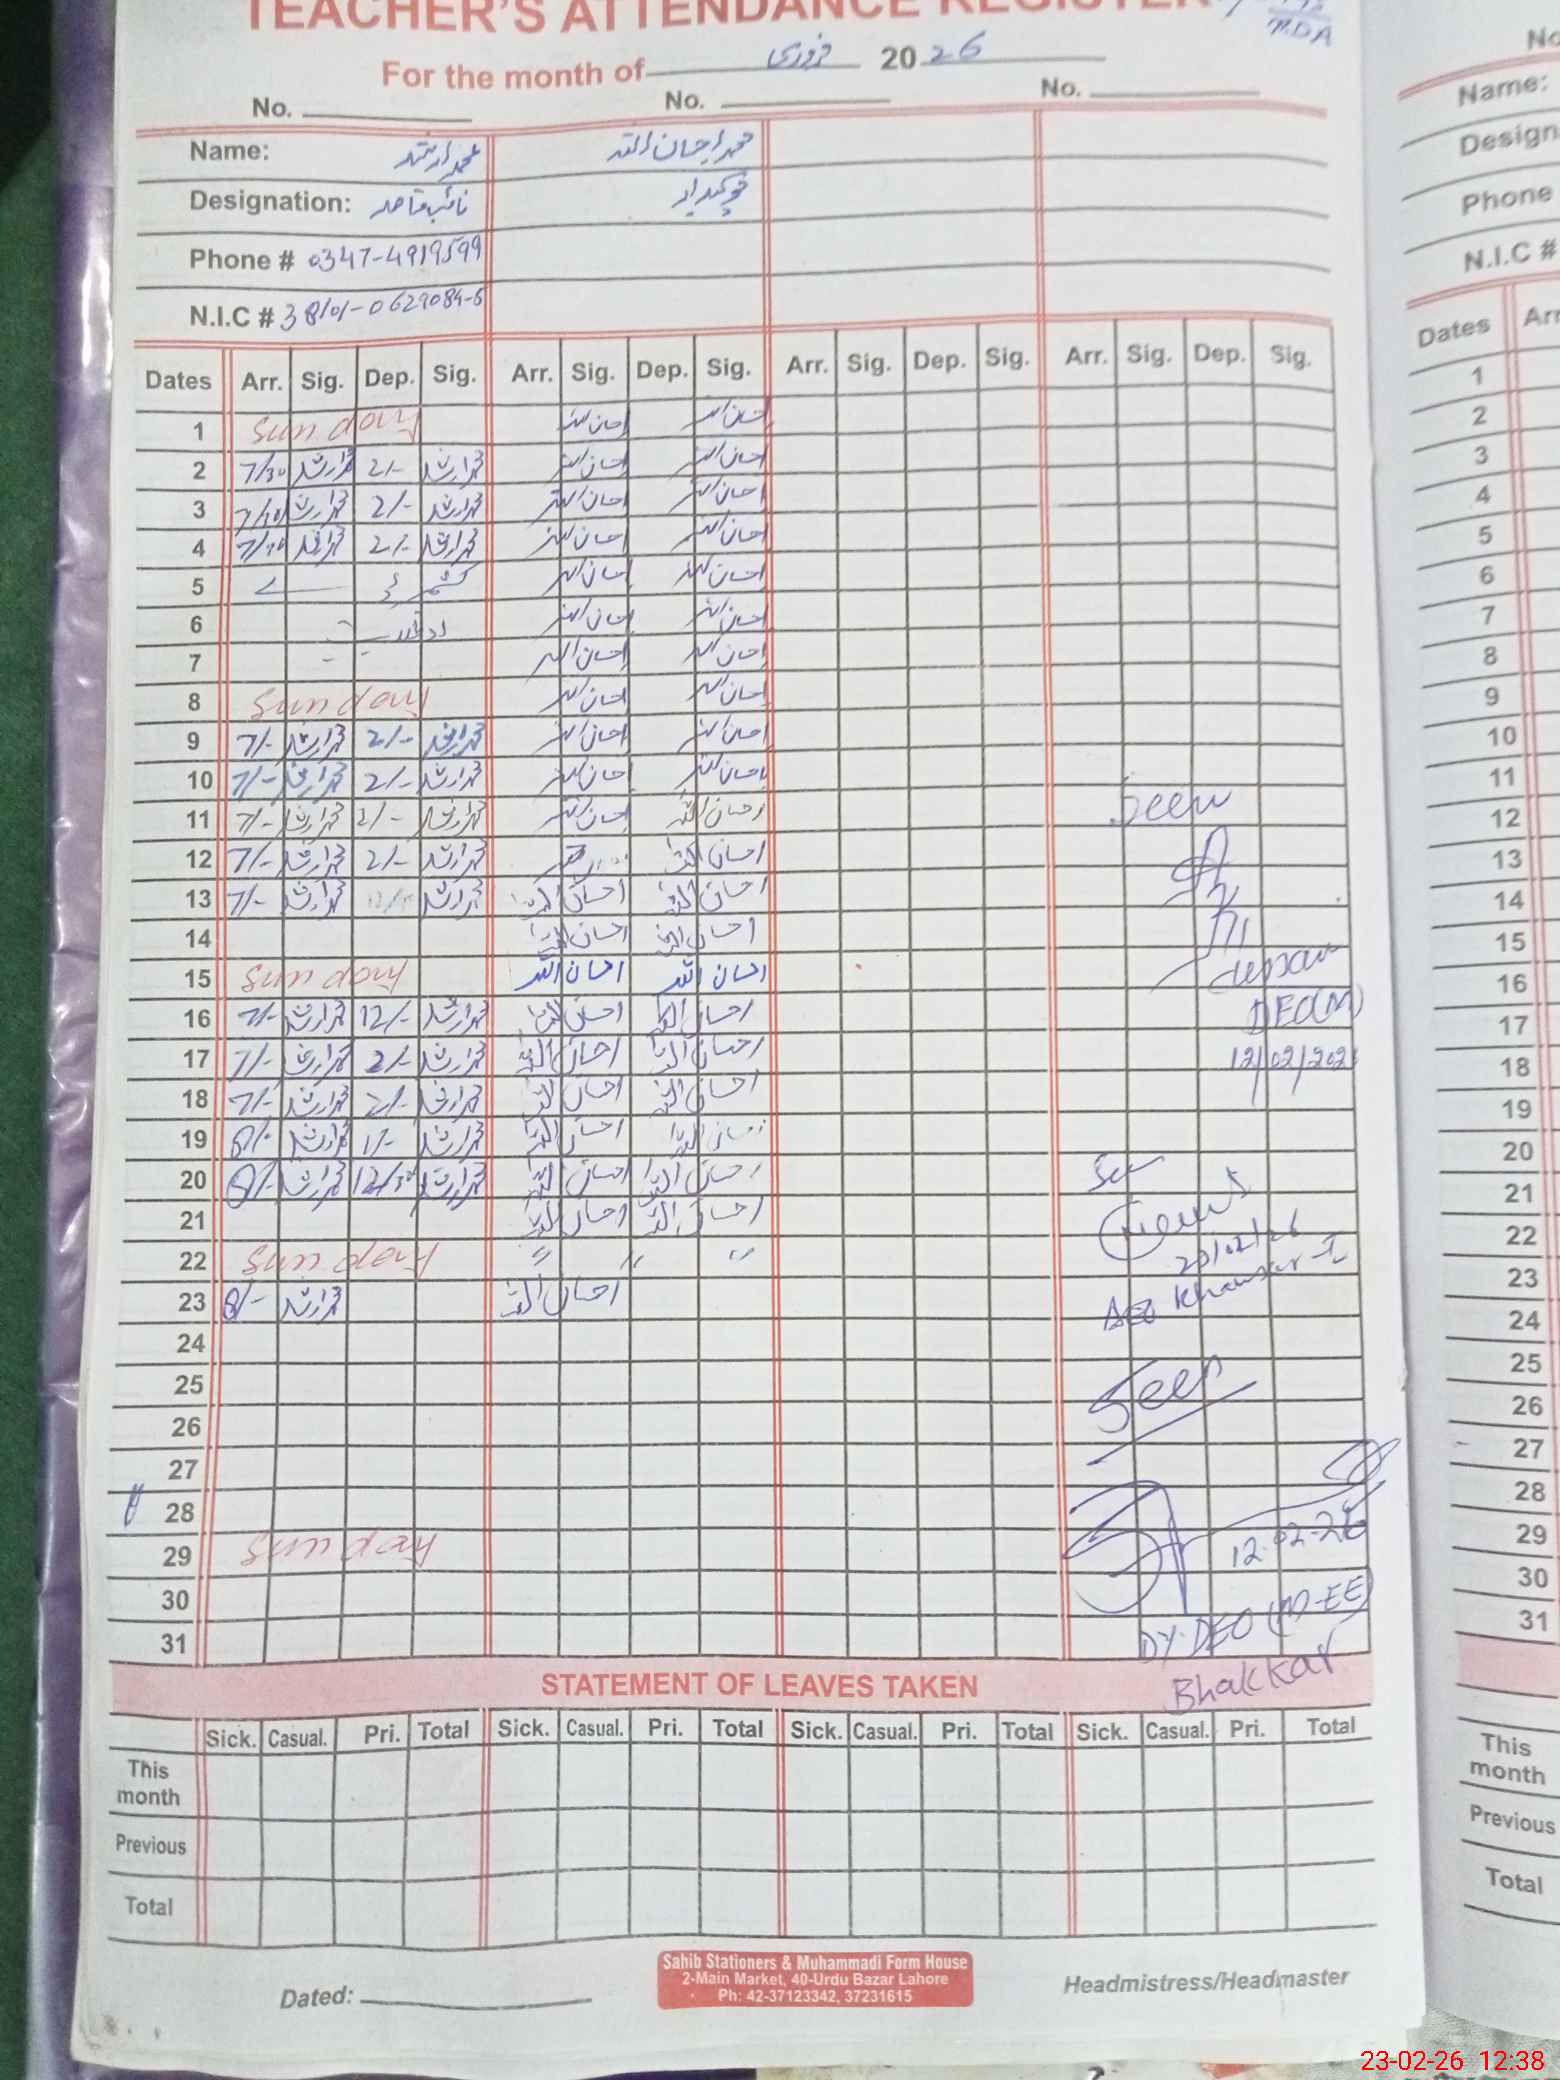 TEACHER'S ATTENDANCE REGISTER
MDA
For the month of فروری 2026
No. No. No.
Name: محمد ارشد محمد احسان اللہ
Designation: نائب قاصد چوکیدار
Phone # 0347-4919599
N.I.C # 38101-0629084-5
Dates Arr. Sig. Dep. Sig. Arr. Sig. Dep. Sig. Arr. Sig. Dep. Sig. Arr. Sig. Dep. Sig.
1 Sunday احسان اللہ احسان اللہ
2 7/30 محمد ارشد 2/- محمد ارشد احسان اللہ احسان اللہ
3 7/30 محمد ارشد 2/- محمد ارشد احسان اللہ احسان اللہ
4 7/30 محمد ارشد 2/- محمد ارشد احسان اللہ احسان اللہ
5 کشمیر ڈے احسان اللہ احسان اللہ
6 احسان اللہ احسان اللہ
7 احسان اللہ احسان اللہ
8 Sunday احسان اللہ احسان اللہ
9 7/- محمد ارشد 2/- محمد ارشد احسان اللہ احسان اللہ
10 7/- محمد ارشد 2/- محمد ارشد احسان اللہ احسان اللہ
11 7/- محمد ارشد 2/- محمد ارشد احسان اللہ احسان اللہ
Seen
12 7/- محمد ارشد 2/- محمد ارشد احسان اللہ
13 7/- محمد ارشد محمد ارشد احسان اللہ احسان اللہ
14 احسان اللہ احسان اللہ
15 Sunday احسان اللہ احسان اللہ
16 7/- محمد ارشد 12/- محمد ارشد احسان اللہ احسان اللہ
DEO(M)
17 7/- محمد ارشد 2/- محمد ارشد احسان اللہ احسان اللہ
12/02/202
18 7/- محمد ارشد 2/- محمد ارشد احسان اللہ احسان اللہ
19 8/- محمد ارشد 1/- محمد ارشد احسان اللہ احسان اللہ
20 8/- محمد ارشد 12/30 محمد ارشد احسان اللہ احسان اللہ
21 احسان اللہ احسان اللہ
22 Sunday " " "
20/02/26
23 8/- محمد ارشد احسان اللہ
AEO Khansar-I
24
25
Seen
26
27
28
29 Sunday
12-02-26
30
31
DY.DEO (M-EE)
Bhakkar
STATEMENT OF LEAVES TAKEN
Sick. Casual. Pri. Total Sick. Casual. Pri. Total Sick. Casual. Pri. Total Sick. Casual. Pri. Total
This month
Previous
Total
Sahib Stationers & Muhammadi Form House
2-Main Market, 40-Urdu Bazar Lahore
Ph: 42-37123342, 37231615
Dated: Headmistress/Headmaster
No
Name:
Design
Phone
N.I.C #
Dates Arr
1
2
3
4
5
6
7
8
9
10
11
12
13
14
15
16
17
18
19
20
21
22
23
24
25
26
27
28
29
30
31
This month
Previous
Total
23-02-26 12:38